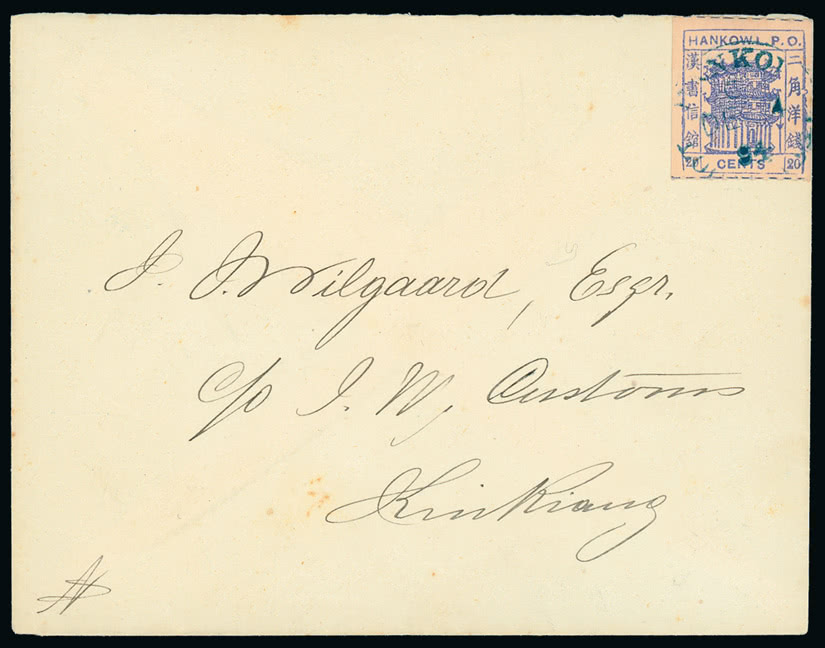 HANKOW L. P. O.
漢書信館
二角洋錢
20 CENTS 20
94
J. J. Wilgaard, Esqr.
c/o I. M. Customs
Kinkiang